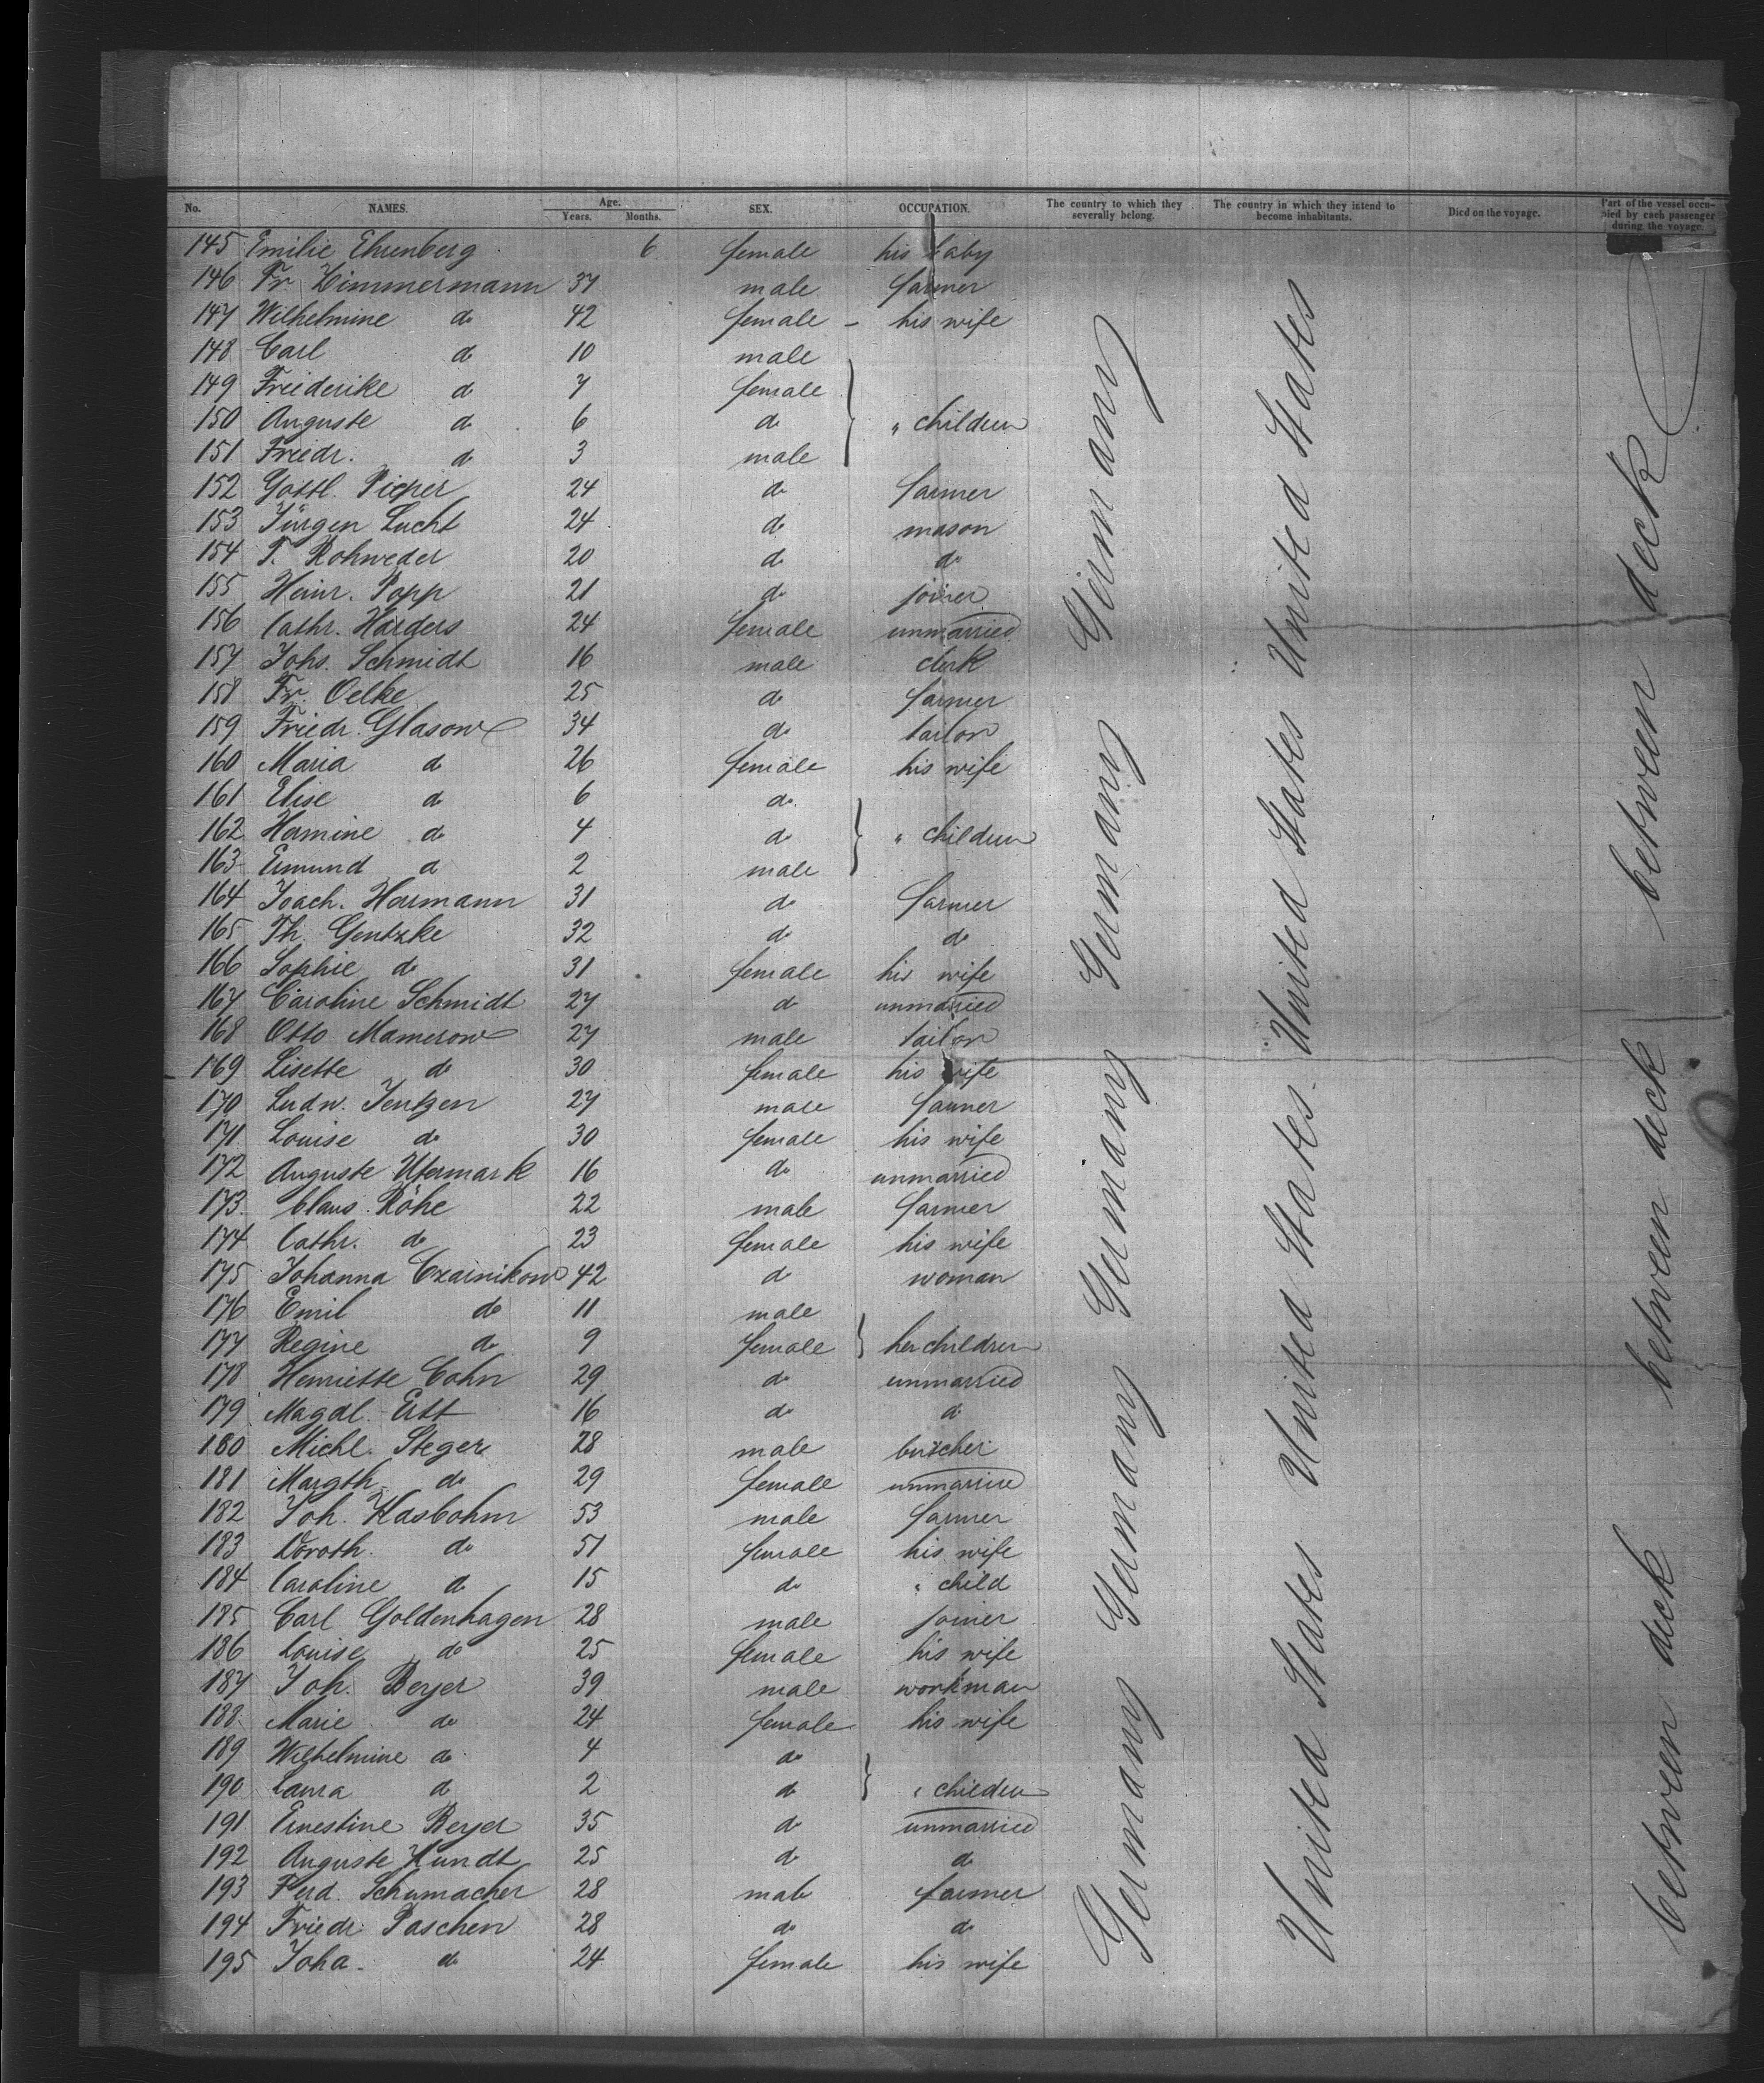 No. NAMES. Age. Years. Months. SEX. OCCUPATION. The country to which they severally belong. The country in which they intend to become inhabitants. Died on the voyage. Part of the vessel occupied by each passenger during the voyage.
145 Emilie Ehrenberg 6 female his baby
146 Fr. Zimmermann 37 male farmer
147 Wilhelmine do 42 female his wife
148 Carl do 10 male
149 Friederike do 7 female
150 Auguste do 6 do " children
151 Friedr. do 3 male
152 Gottl. Pieper 24 do farmer
153 Jürgen Lucht 24 do mason
154 T. Rohweder 20 do do
155 Heinr. Popp 21 do joiner
156 Cathr. Harders 24 female unmarried
157 Johs. Schmidt 16 male clerk
158 Fr. Oelke 25 do farmer
159 Friedr. Glasow 34 do tailor
160 Maria do 26 female his wife
161 Elise do 6 do
162 Hermine do 4 do " children
163 Emund do 2 male
164 Joach. Herrmann 31 do farmer
165 Th. Gentzke 32 do do
166 Sophie do 31 female his wife
167 Caroline Schmidt 27 do unmarried
168 Otto Mamerow 27 male tailor
169 Lisette do 30 female his wife
170 Ludw. Jentzen 27 male farmer
171 Louise do 30 female his wife
172 Auguste Utermark 16 do unmarried
173 Claus Röhe 22 male farmer
174 Cathr. do 23 female his wife
175 Johanna Czainikow 42 do woman
176 Emil do 11 male
177 Regine do 9 female her children
178 Henriette Cohn 29 do unmarried
179 Magdl. Ertt 16 do do
180 Michl. Steger 28 male butcher
181 Margth. do 29 female unmarried
182 Joh. Hasbohm 53 male farmer
183 Doroth. do 51 female his wife
184 Caroline do 15 do " child
185 Carl Goldenhagen 28 male joiner
186 Louise do 25 female his wife
187 Joh. Beyer 39 male workman
188 Marie do 24 female his wife
189 Wilhelmine do 4 do
190 Laura do 2 do " children
191 Ernestine Beyer 35 do unmarried
192 Auguste Hundt 25 do do
193 Ferd. Schumacher 28 male farmer
194 Friedr. Paschen 28 do do
195 Joha. do 24 female his wife
Germany Germany Germany Germany Germany
United States United States United States United States
between deck between deck between deck